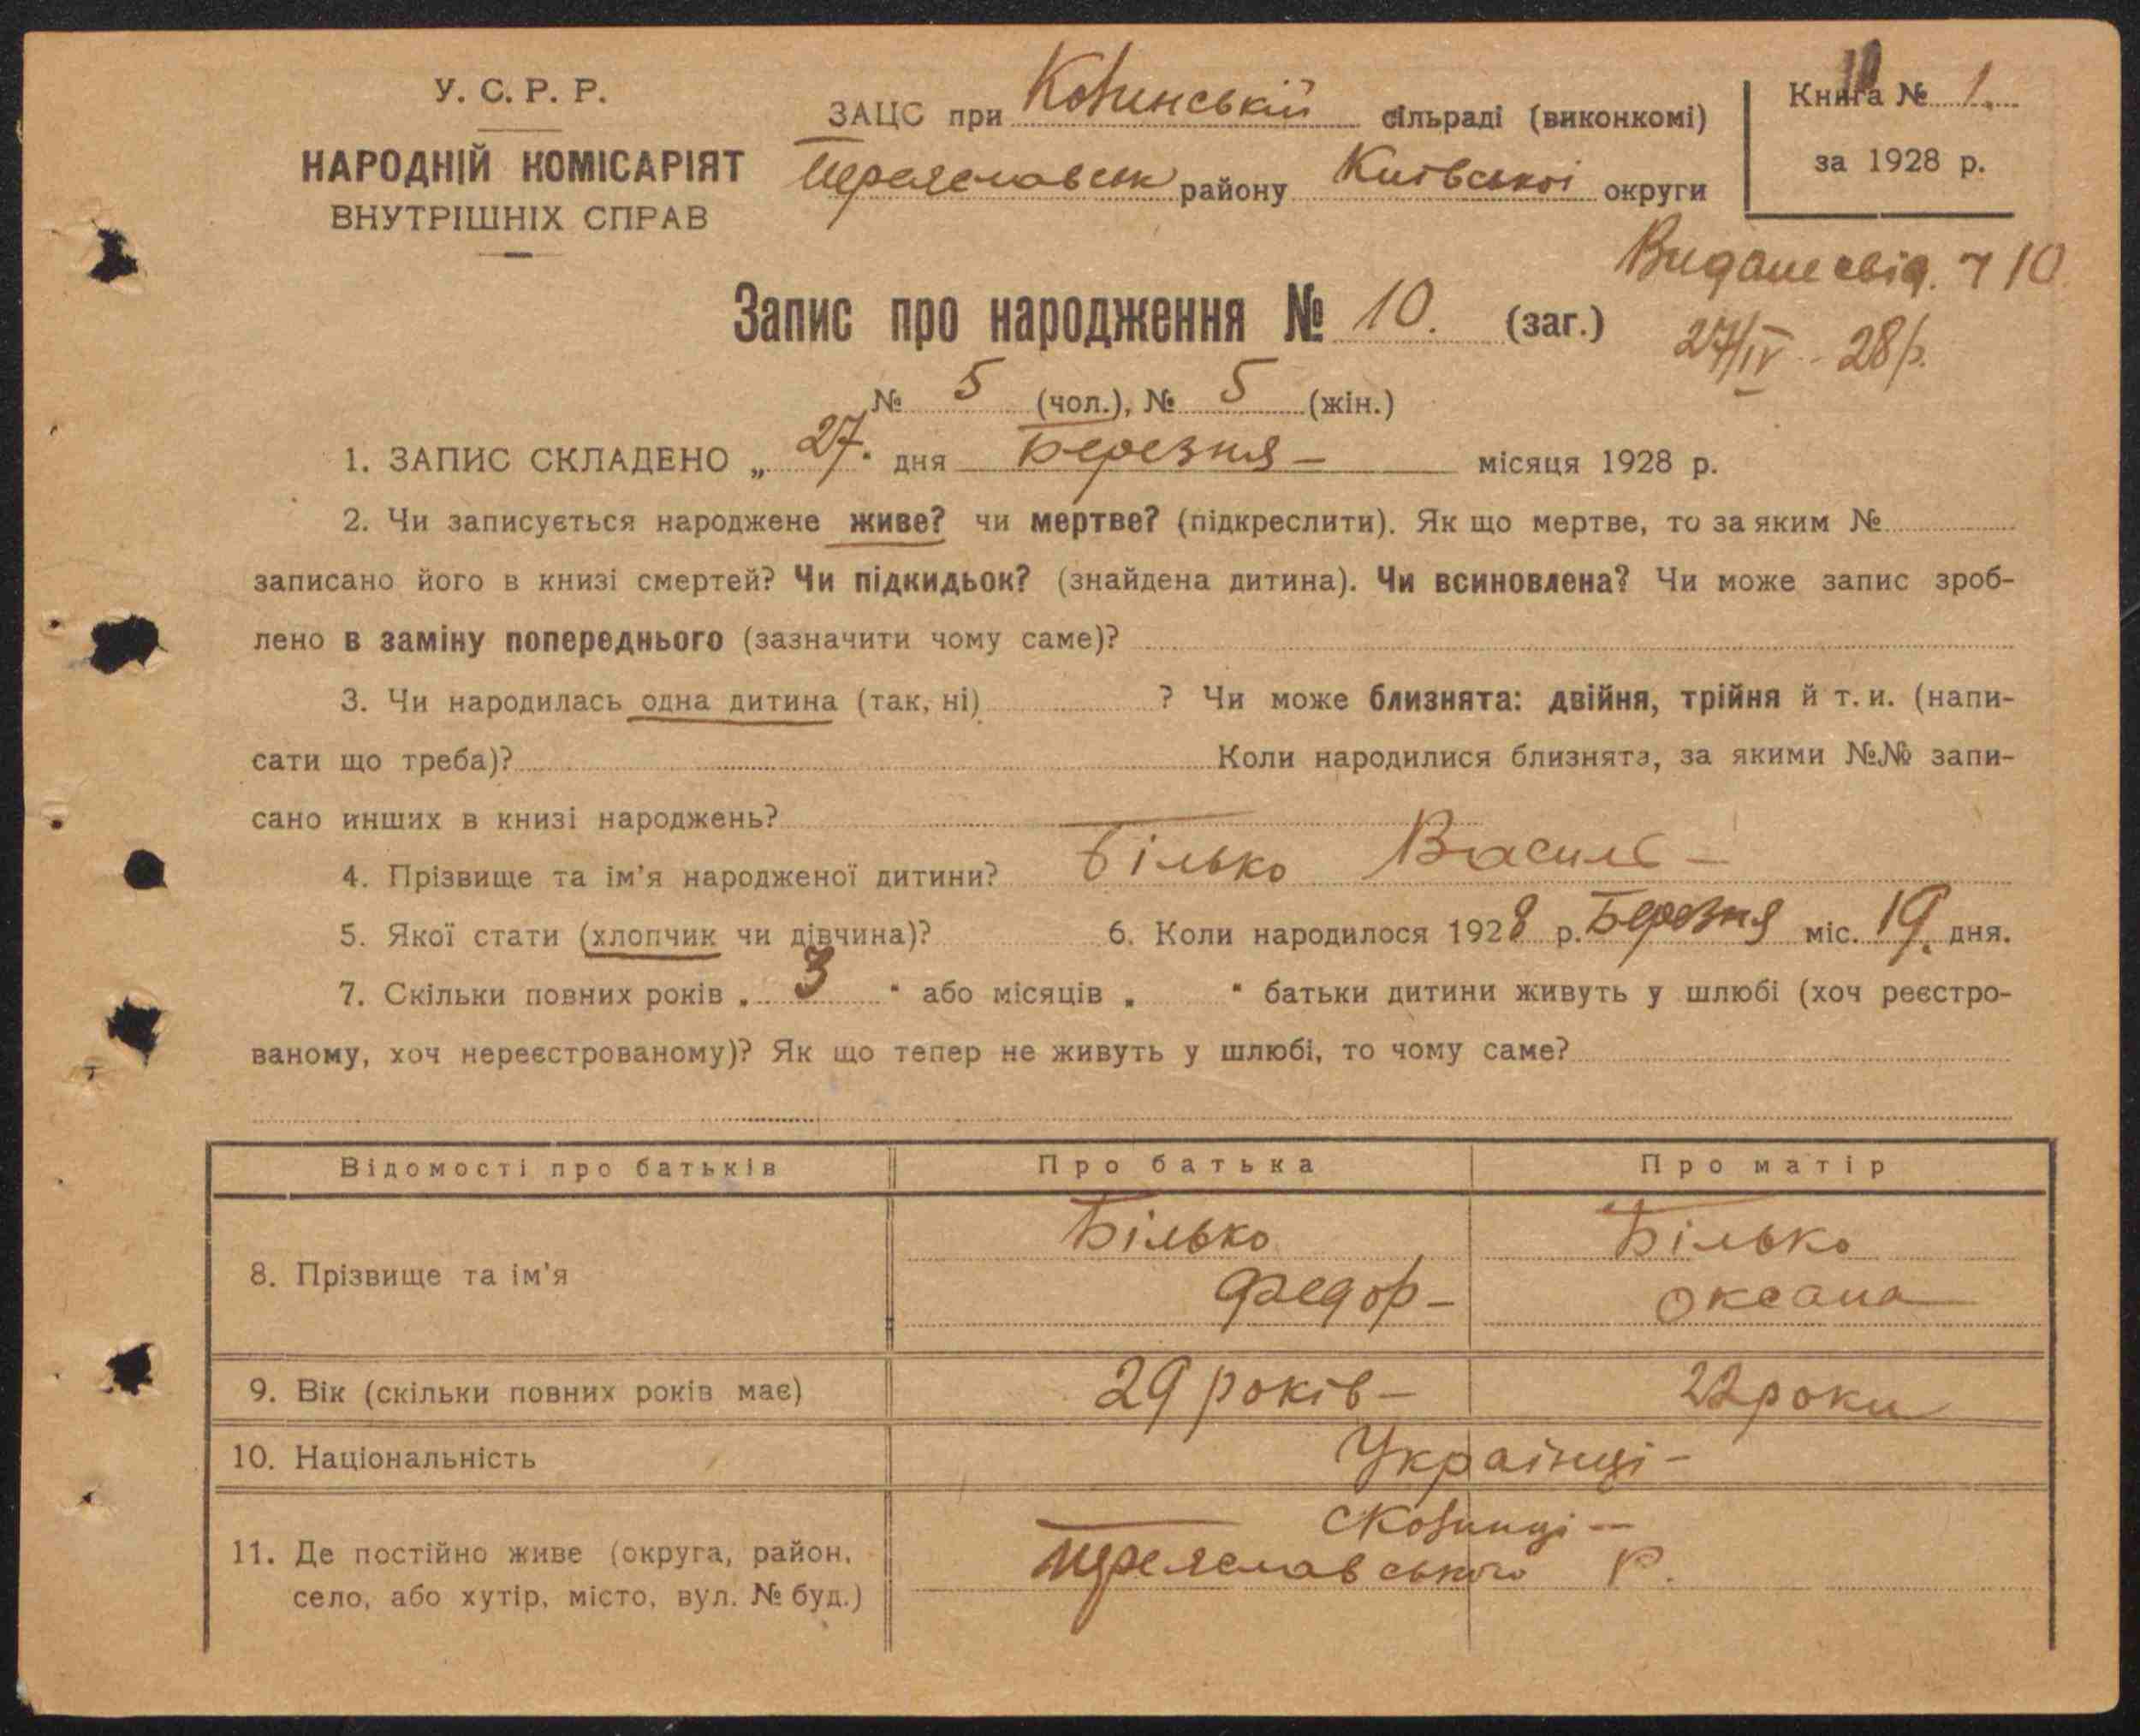 У. С. Р. Р.
НАРОДНІЙ КОМІСАРІЯТ
ВНУТРІШНІХ СПРАВ
ЗАЦС при Ковинській сільраді (виконкомі)
Переяславськ району Київської округи
Книга № 1.
за 1928 р.
Видане свід. ч 10
27/IV - 28 р.
Запис про народження № 10. (заг.)
№ 5 (чол.), № 5 (жін.)
1. ЗАПИС СКЛАДЕНО „ 27." дня Березня – місяця 1928 р.
2. Чи записується народжене живе? чи мертве? (підкреслити). Як що мертве, то за яким №
записано його в книзі смертей? Чи підкидьок? (знайдена дитина). Чи всиновлена? Чи може запис зроб-
лено в заміну попереднього (зазначити чому саме)?
3. Чи народилась одна дитина (так, ні) ? Чи може близнята: двійня, трійня й т. и. (напи-
сати що треба)? Коли народилися близнята, за якими №№ запи-
сано инших в книзі народжень?
4. Прізвище та ім'я народженої дитини? Білько Василь –
5. Якої стати (хлопчик чи дівчина)? 6. Коли народилося 1928 р. Березня міс. 19. дня.
7. Скільки повних років „ 3 " або місяців „ " батьки дитини живуть у шлюбі (хоч реєстро-
ваному, хоч нереєстрованому)? Як що тепер не живуть у шлюбі, то чому саме?
Відомості про батьків Про батька Про матір
8. Прізвище та ім'я
Білько Білько
Федор – Оксана
9. Вік (скільки повних років має) 29 років – 22 роки
10. Національність Українці –
11. Де постійно живе (округа, район,
село, або хутір, місто, вул. № буд.)
Переяславського Р.